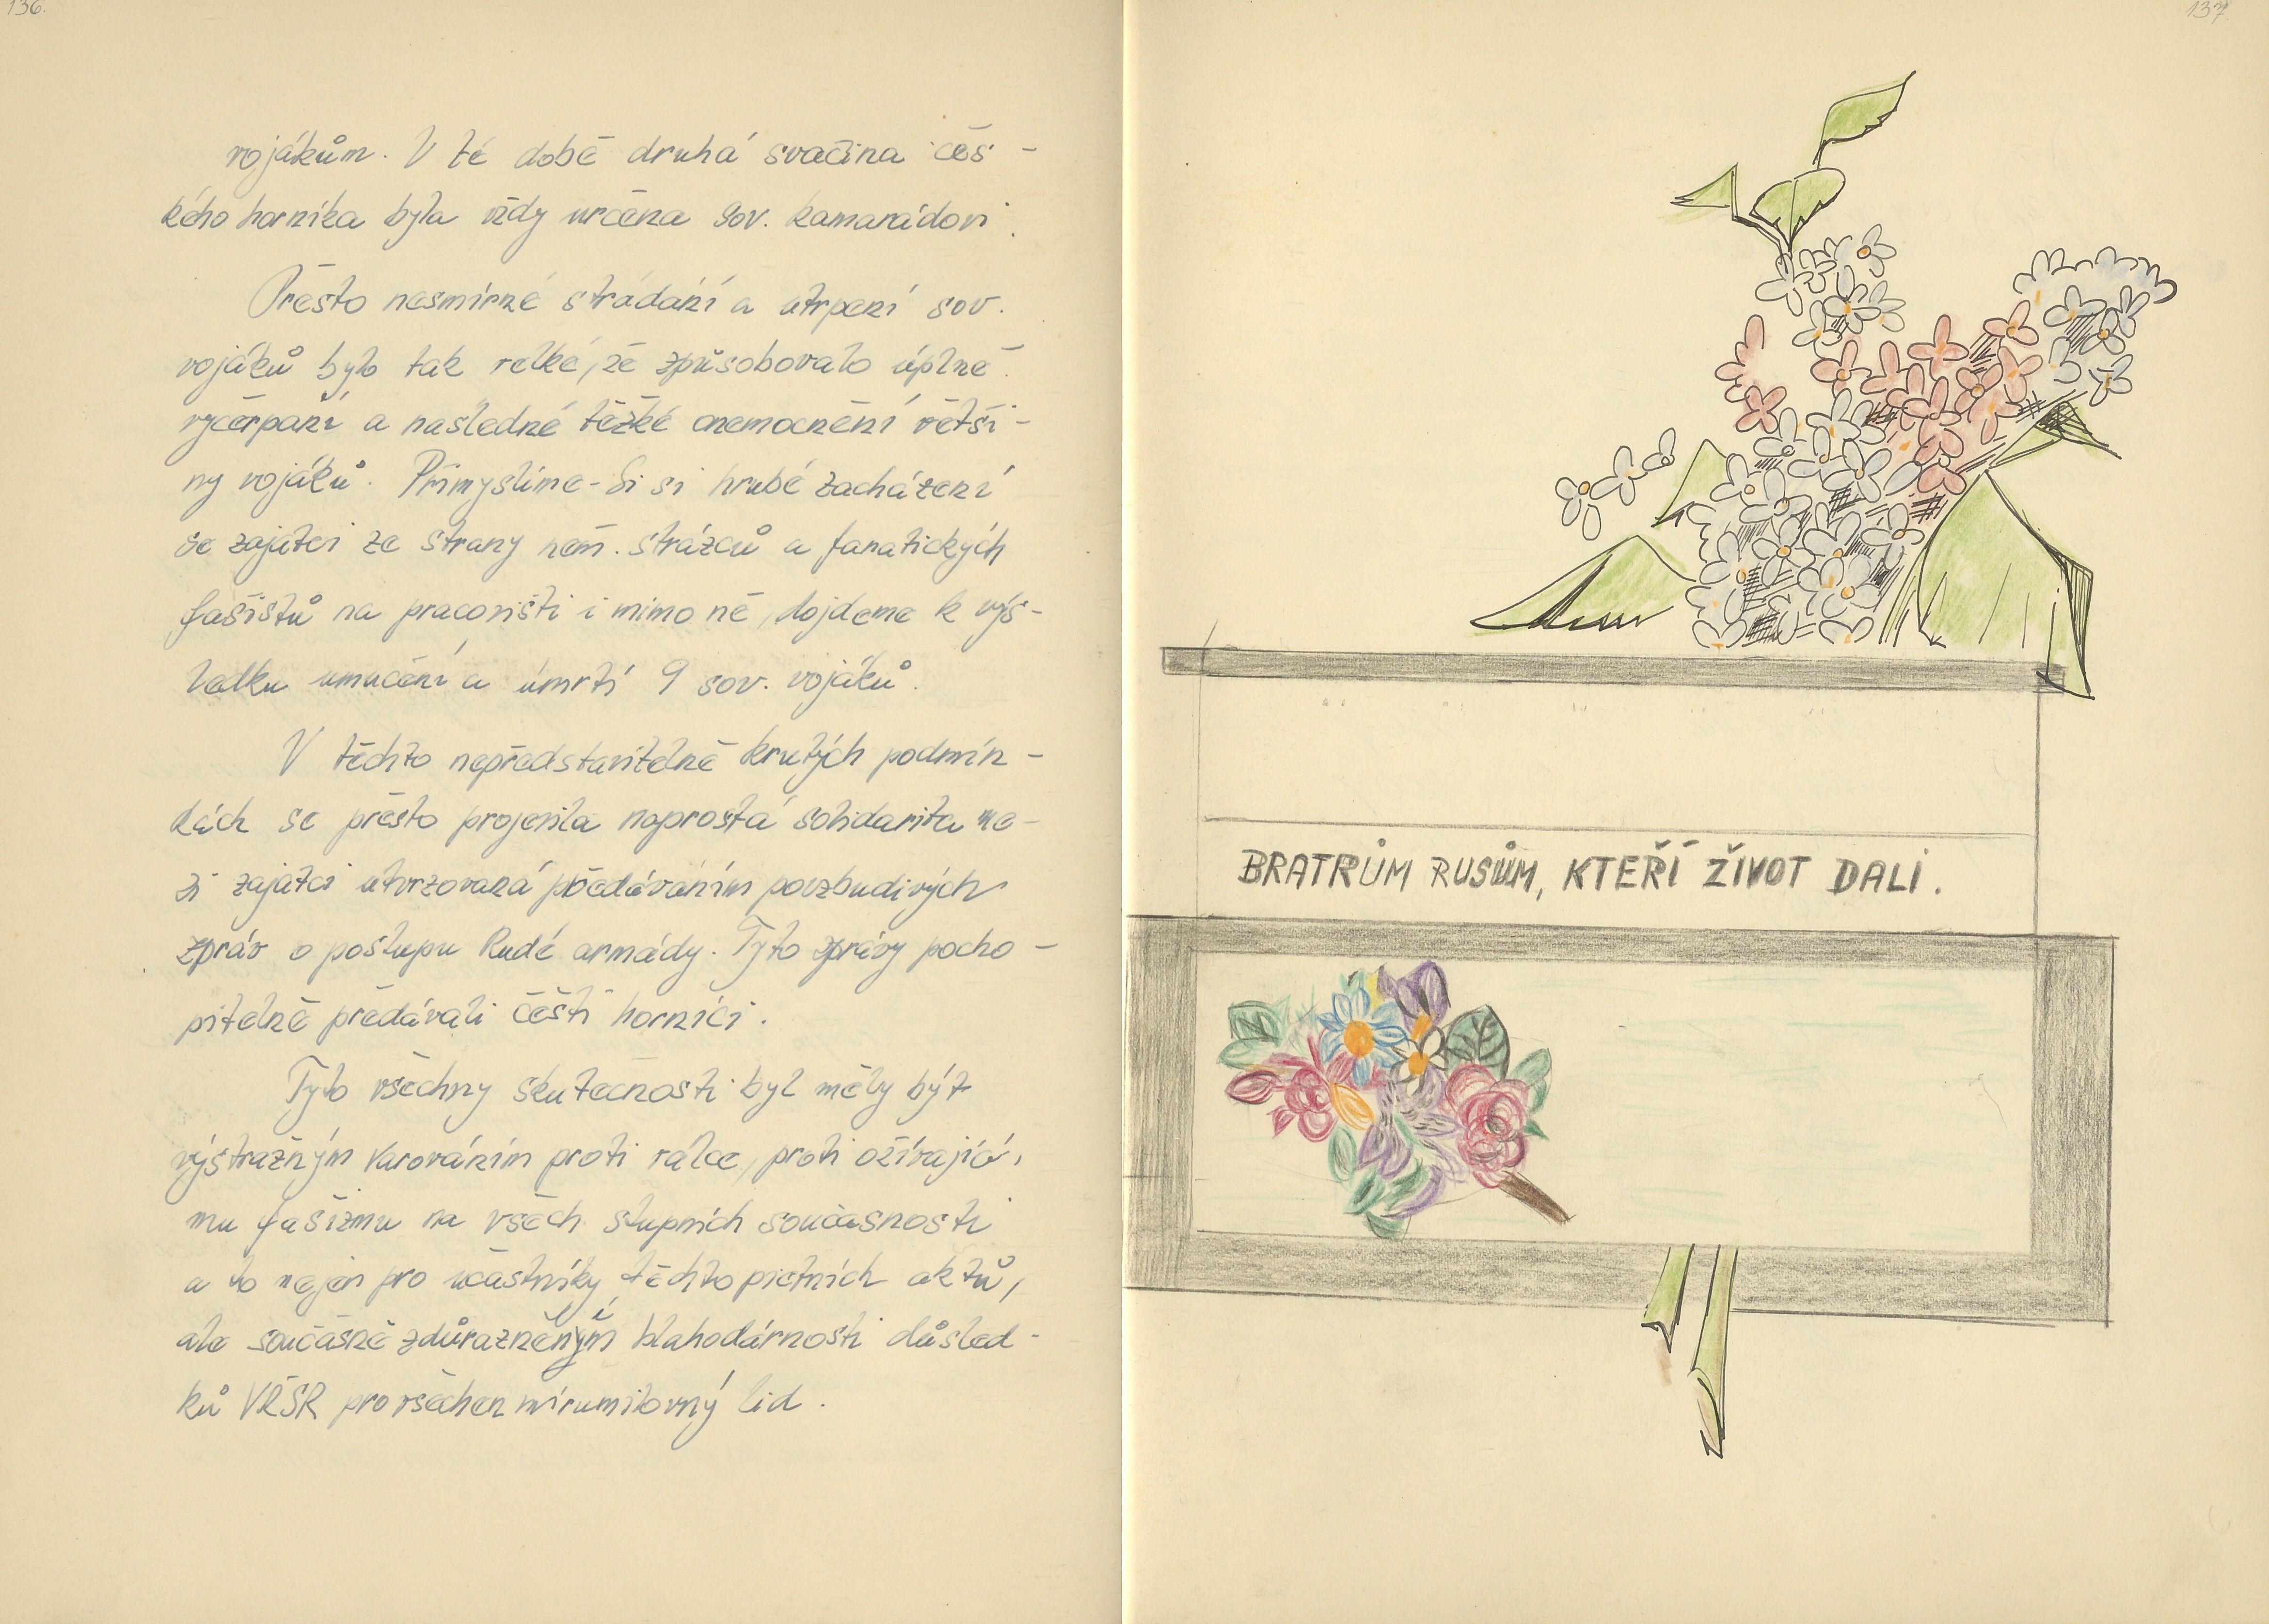 136.
vojákům. V té době druhá svačina čes-
kého horníka byla vždy určena sov. kamarádovi.
Přesto nesmírné strádání a utrpení sov.
vojáků bylo tak velké, že způsobovalo úplné
vyčerpání a následné těžké onemocnění větši-
ny vojáků. Přimyslíme-li si hrubé zacházení
se zajatci ze strany něm. strážců a fanatických
fašistů na pracovišti i mimo ně, dojdeme k výs-
ledku umučení a úmrtí 9 sov. vojáků.
V těchto nepředstavitelně krutých podmín-
kách se přesto projevila naprostá solidarita me-
zi zajatci utvrzovaná předáváním povzbudivých
zpráv o postupu Rudé armády. Tyto zprávy pocho-
pitelně předávali čeští horníci.
Tyto všechny skutečnosti by měly být
výstražným varováním proti válce, proti ožívající-
mu fašizmu na všech stupních současnosti
a to nejen pro účastníky těchto pietních aktů,
ale současně blahodárnosti důsled-
ků VŘSR pro všechen mírumilovný lid.
137.
BRATRŮM RUSŮM, KTEŘÍ ŽIVOT DALI.